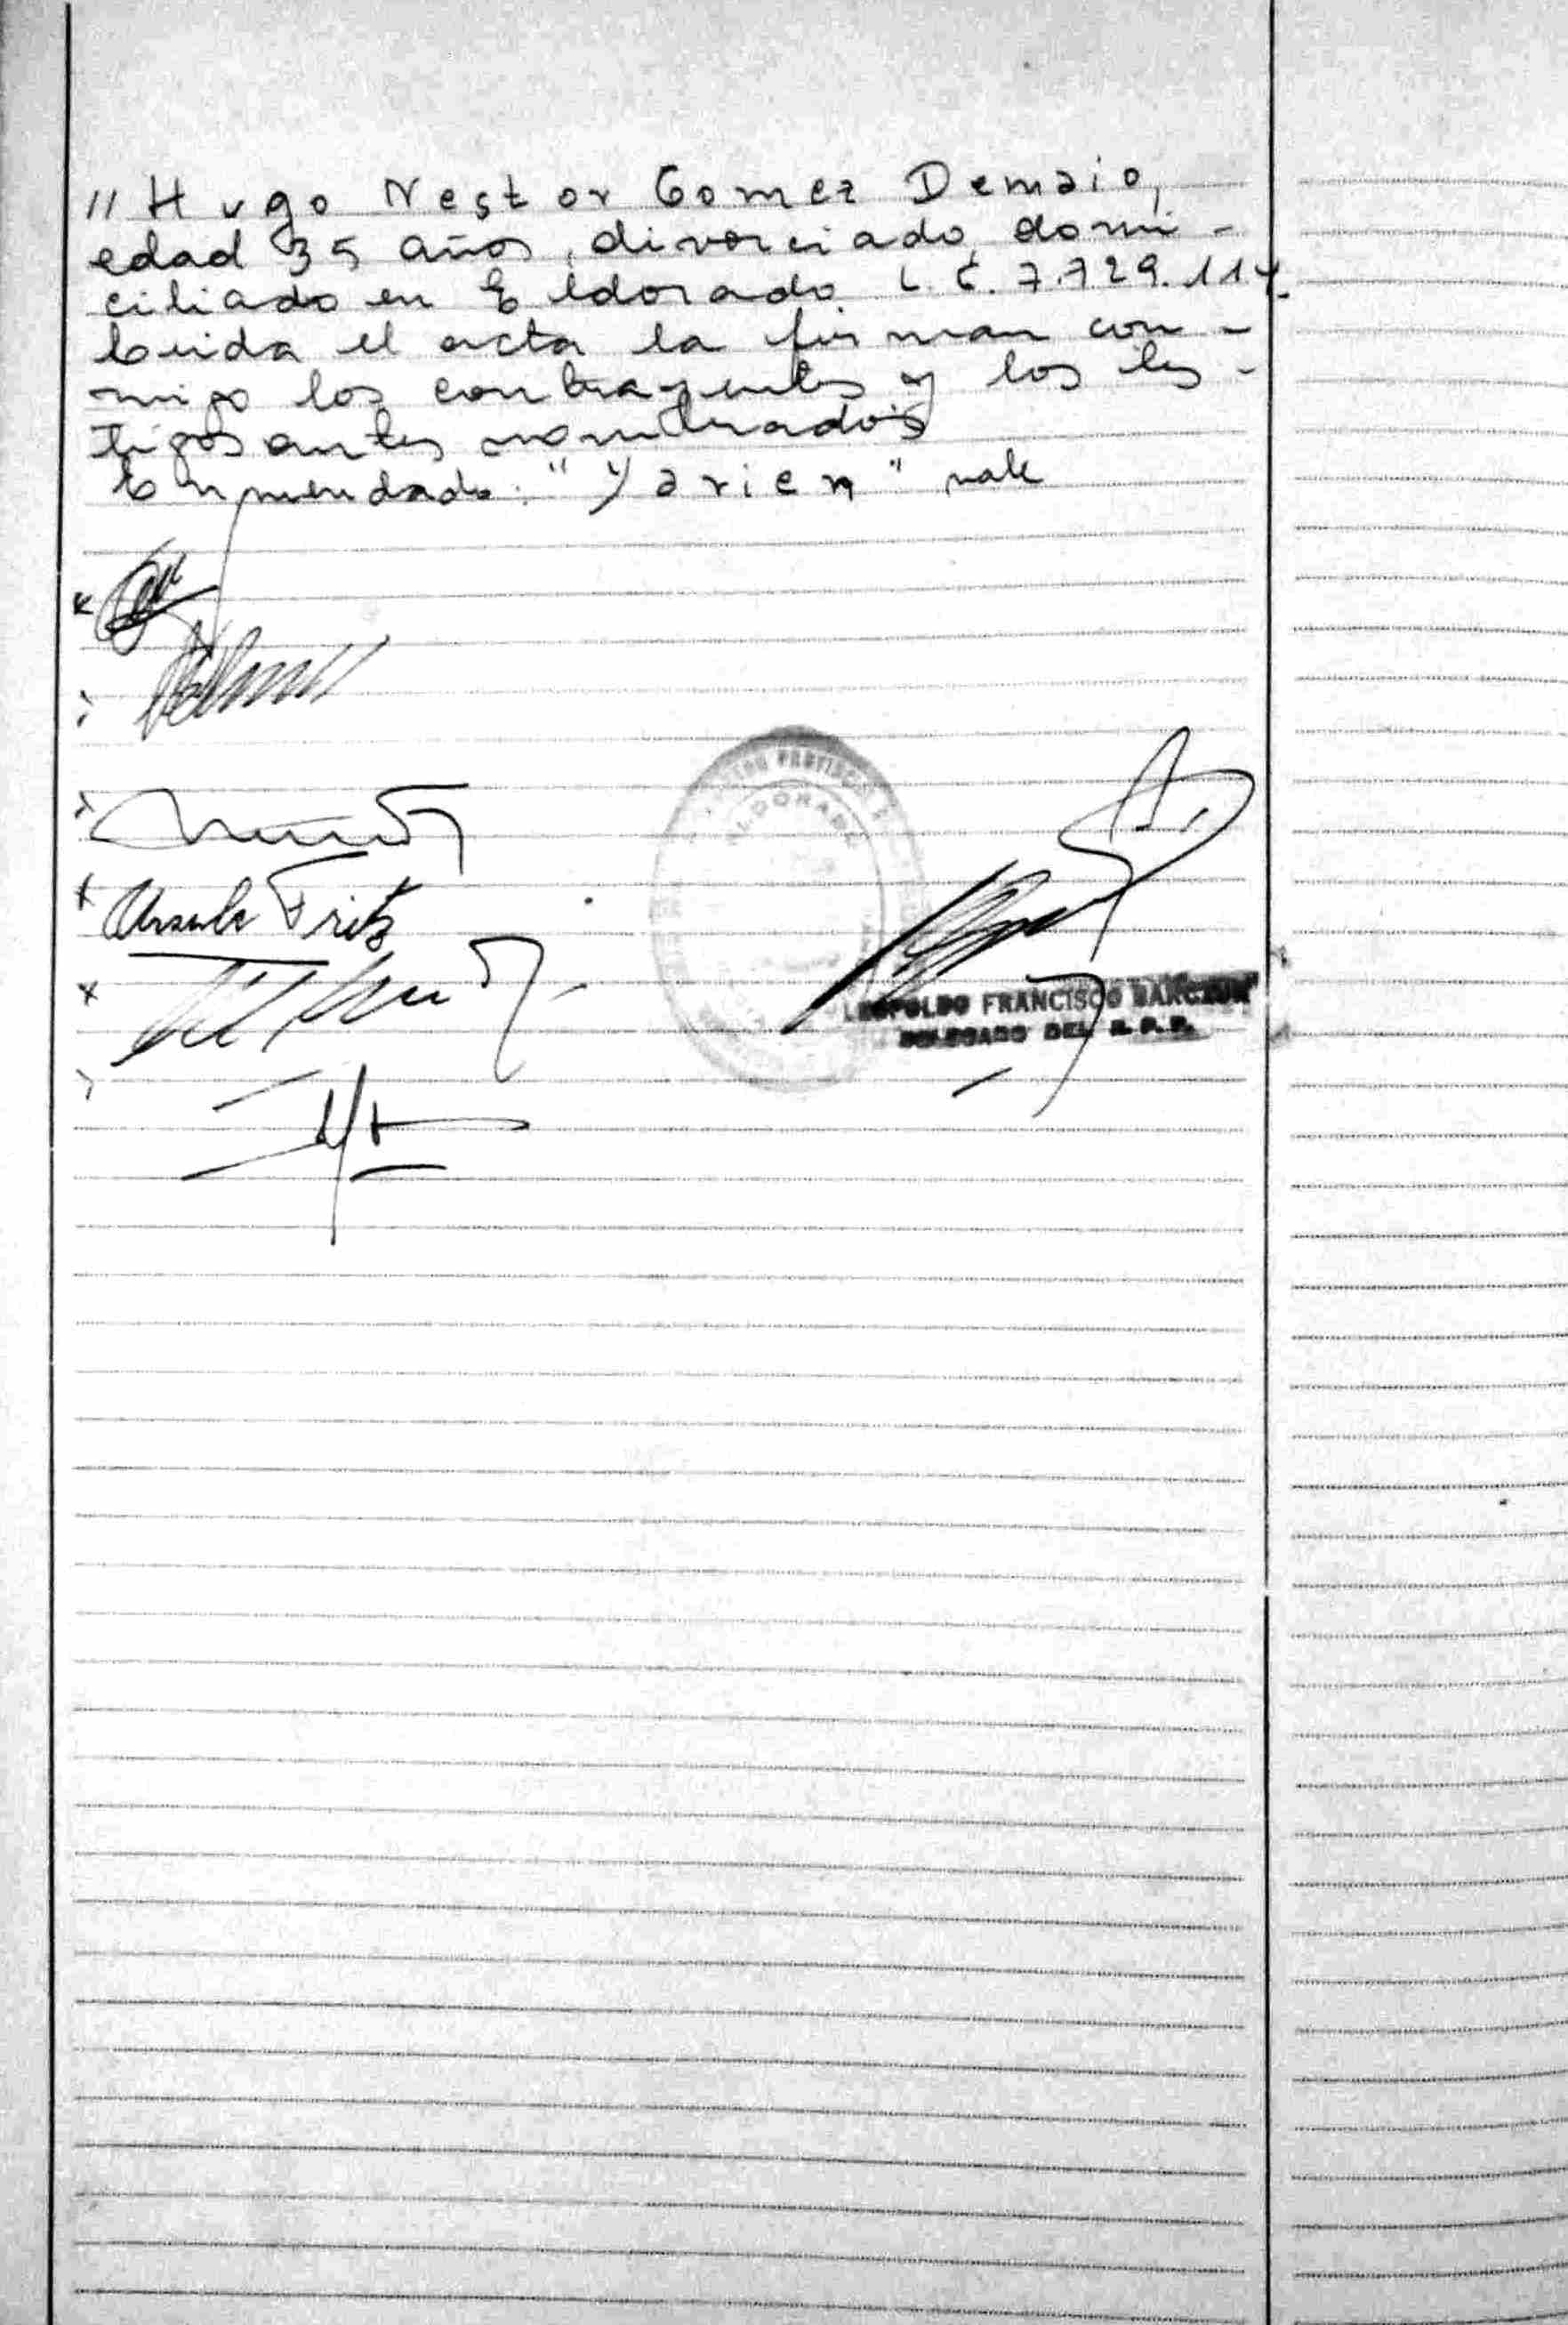 // Hugo Nestor Gomez Demaio,
edad 35 años, divorciado, domi-
ciliado en Eldorado L.E. 7.729.114.
Leida el acta la firman con-
migo los contrayentes y los tes-
tigos antes nombrados
Enmendado: "Yarien" vale
Ursula Fritz
ELDORADO
LEOPOLDO FRANCISCO
DELEGADO DEL R. P. P.